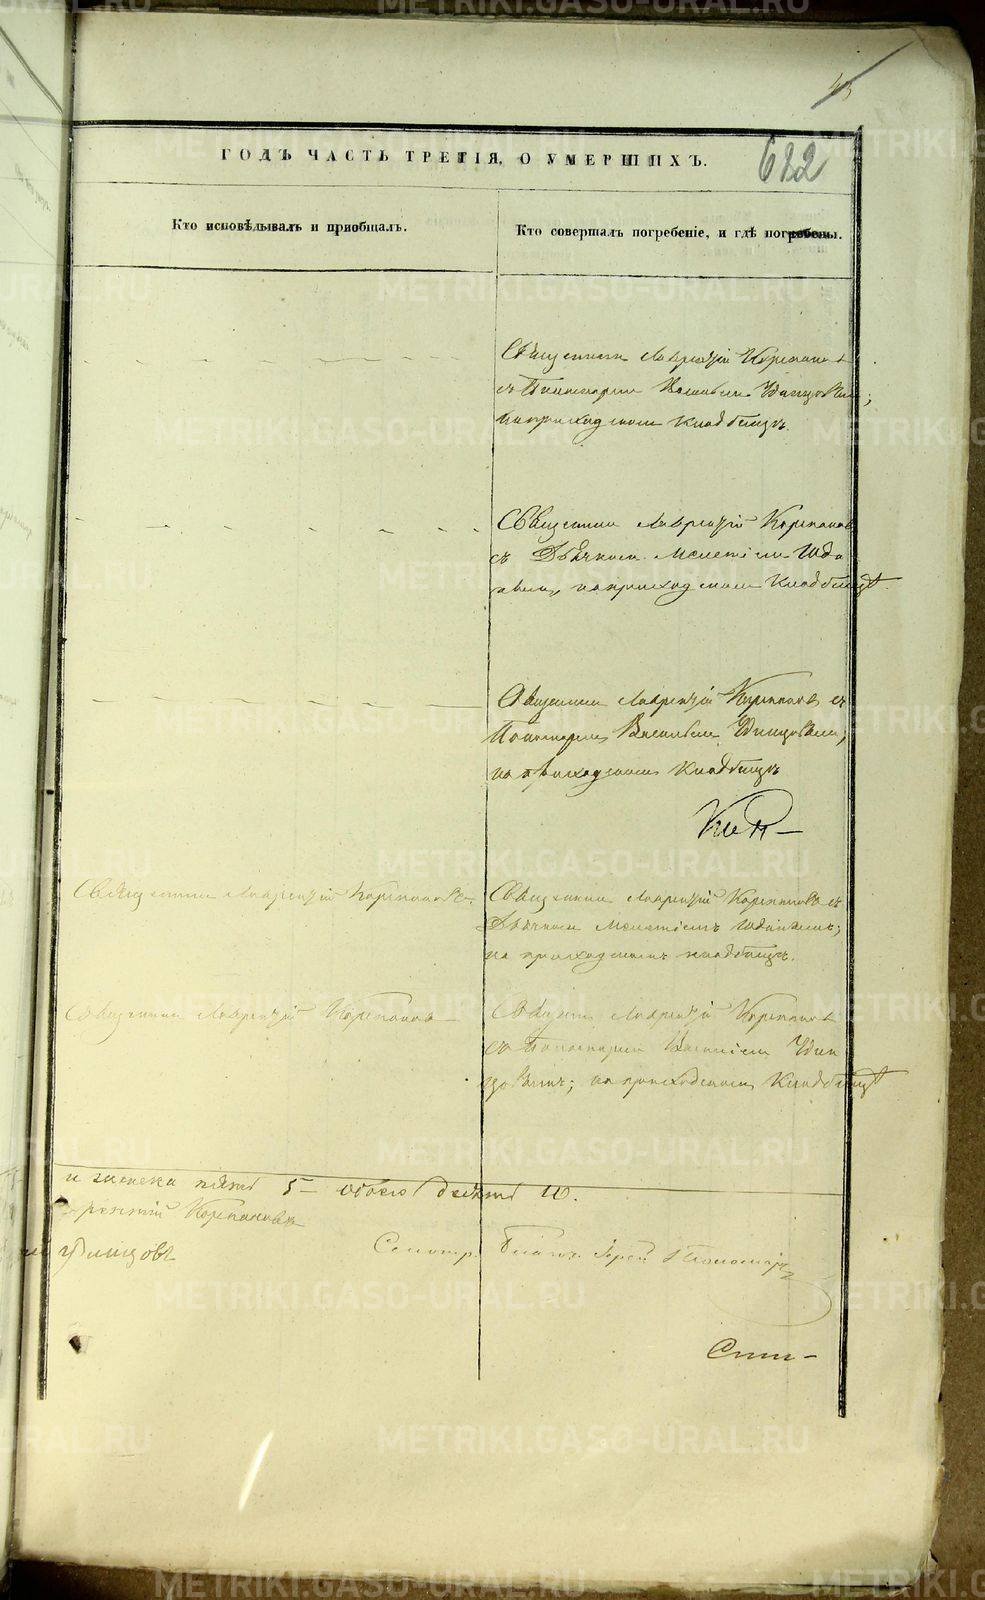 45
ГОДЪ ЧАСТЬ ТРЕТІЯ, О УМЕРШИХЪ.
622
Кто исповѣдывалъ и пріобщалъ.
Кто совершалъ погребеніе, и гдѣ погребены.
Священникъ Лаврентій Корепановъ
съ Пономаремъ Васильемъ Удинцовымъ;
на приходскомъ кладбищѣ.
Священникъ Лаврентій Корепановъ
съ Дьячкомъ Мелетіемъ
на приходскомъ кладбищѣ.
Священникъ Лаврентій Корепановъ съ
Пономаремъ Васильемъ Удинцовымъ,
на приходскомъ кладбищѣ
Священникъ Лаврентій Корепановъ.
Священникъ Лаврентій Корепановъ съ
Дьячкомъ Мелетіемъ
на приходскомъ кладбищѣ.
Священникъ Лаврентій Корепановъ
Священ. Лаврентій Корепановъ
съ Пономаремъ Василіемъ Удин
цовымъ; на приходскомъ кладбищѣ
и женска пять 5 – обоего десять 10.
рентій Корепановъ
Удинцовъ
Смотр. Благоч. Іерей Пономаревъ